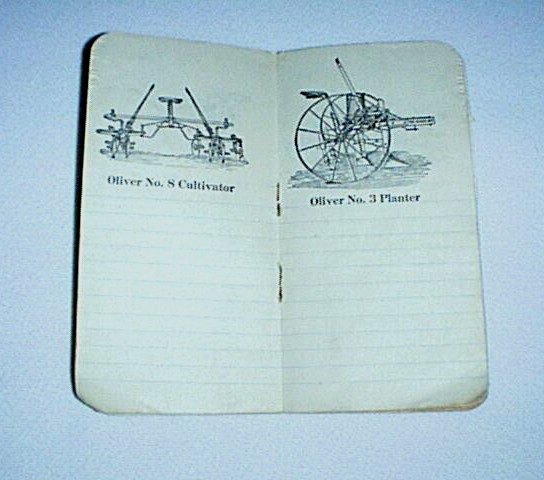 Oliver No. 8 Cultivator
Oliver No. 3 Planter